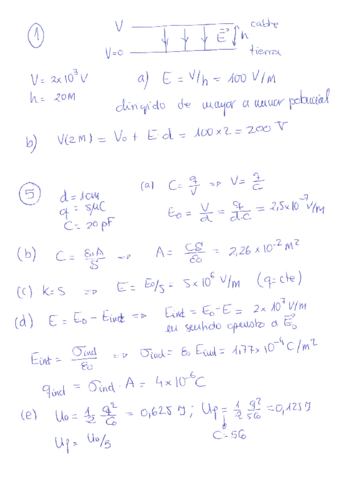 ①
V cable
E⃗ h
V=0 tierra
V = 2x10³ V
h = 20M
a) E = V/h = 100 V/m
dirigido de mayor a menor potencial
b) V(2m) = V₀ + E d = 100x2 = 200 V
⑤
d = 1cm
q = 5μC
C = 20 pF
(a) C = q/V ⇒ V = q/C
E₀ = V/d = q/dC = 2,5x10⁻⁷ V/m
(b) C = ε₀A/S A = CS/ε₀ = 2,26x10⁻² m²
(c) K=5 ⇒ E = E₀/5 = 5x10⁶ V/m (q=cte)
(d) E = E₀ - Eind ⇒ Eind = E₀ - E = 2x10⁷ V/m
en sentido opuesto a E⃗₀
Eind = σind/ε₀ ⇒ σind = ε₀ Eind = 1,77x10⁻⁴ C/m²
qind = σind · A = 4x10⁻⁶ C
(e) U₀ = 1/2 q²/C₀ = 0,625 J ; Uf = 1/2 q²/5C₀ = 0,125 J
Uf = U₀/5 C=5C₀